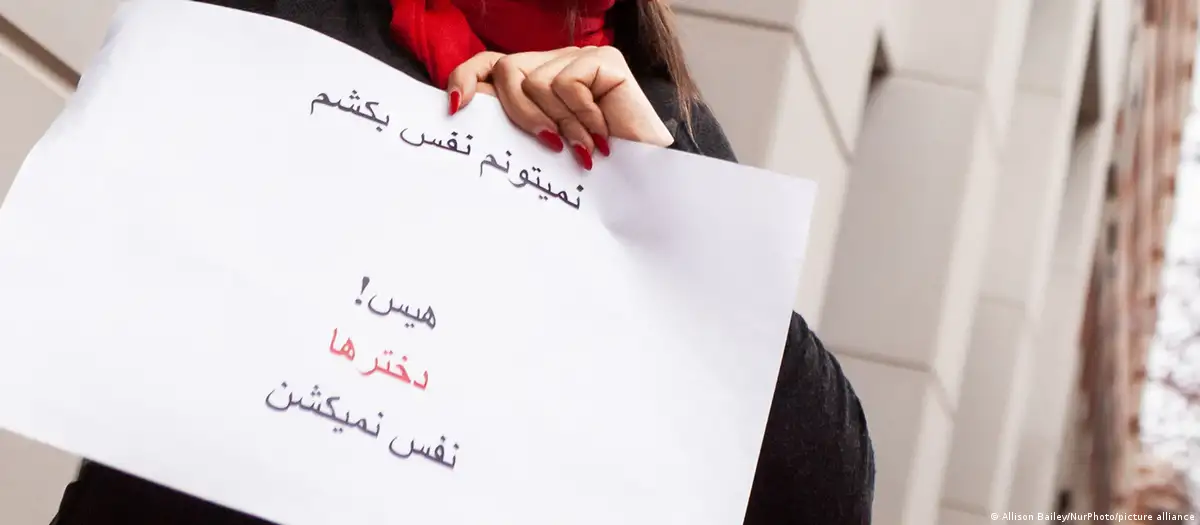 نمیتونم نفس بکشم
هیس!
دخترها
نفس نمیکشن
© Allison Bailey/NurPhoto/picture alliance